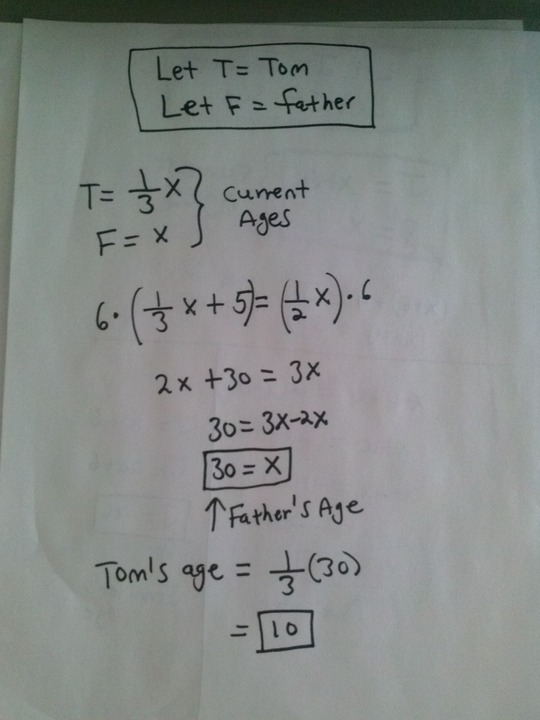 Let T= Tom
Let F = father
T= 1/3 X } Current
F = X } Ages
6 · (1/3 x + 5) = (1/2 x) · 6
2x + 30 = 3x
30 = 3x-2x
30 = x
↑ Father's Age
Tom's age = 1/3 (30)
= 10